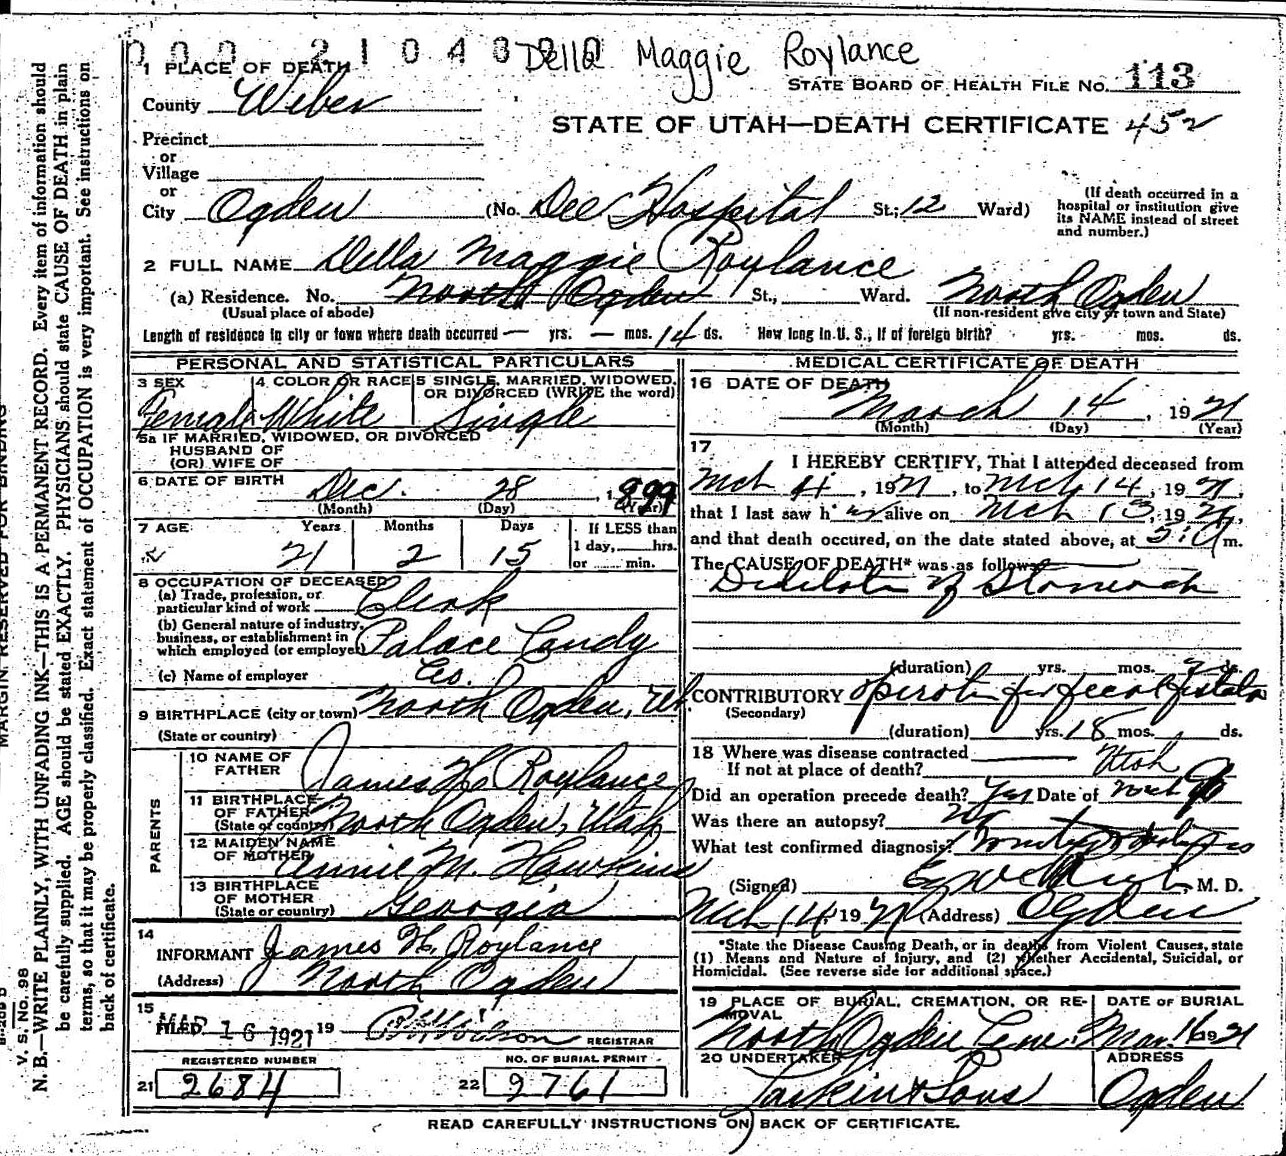 Della Maggie Roylance
1 PLACE OF DEATH
STATE BOARD OF HEALTH FILE NO. 113
County Weber
STATE OF UTAH—DEATH CERTIFICATE 452
Precinct
or
Village
or
City Ogden (No. Dee Hospital St; 12 Ward)
(If death occurred in a hospital or institution give its NAME instead of street and number.)
2 FULL NAME Della Maggie Roylance
(a) Residence. No. North Ogden St., Ward. North Ogden
(Usual place of abode) (If non-resident give city or town and State)
Length of residence in city or town where death occurred — yrs. — mos. 14 ds. How long in U. S., if of foreign birth? yrs. mos. ds.
PERSONAL AND STATISTICAL PARTICULARS
3 SEX Female
4 COLOR OR RACE White
5 SINGLE, MARRIED, WIDOWED, OR DIVORCED (WRITE the word) Single
5a IF MARRIED, WIDOWED, OR DIVORCED
HUSBAND OF
(OR) WIFE OF
6 DATE OF BIRTH Dec. 28, 1899
(Month) (Day) (Year)
7 AGE Years Months Days If LESS than
21 2 15 1 day, hrs.
or min.
8 OCCUPATION OF DECEASED
(a) Trade, profession, or
particular kind of work Clerk
(b) General nature of industry,
business, or establishment in
which employed (or employer) Palace Candy
(c) Name of employer Co.
9 BIRTHPLACE (city or town) North Ogden, Ut.
(State or country)
PARENTS
10 NAME OF
FATHER James H. Roylance
11 BIRTHPLACE
OF FATHER
(State or country) North Ogden, Utah
12 MAIDEN NAME
OF MOTHER Annie M. Hawkins
13 BIRTHPLACE
OF MOTHER
(State or country) Georgia
14
INFORMANT James H. Roylance
(Address) North Ogden
15
FILED MAR 16 1921 19
REGISTRAR
REGISTERED NUMBER
21 2684
NO. OF BURIAL PERMIT
22 2761
MEDICAL CERTIFICATE OF DEATH
16 DATE OF DEATH
March 14, 1921
(Month) (Day) (Year)
17
I HEREBY CERTIFY, That I attended deceased from
Mch 4, 1921, to Mch 14, 1921,
that I last saw her alive on Mch 13, 1921,
and that death occured, on the date stated above, at m.
The CAUSE OF DEATH* was as follows:
of Stomach
(duration) yrs. mos. ds.
CONTRIBUTORY for fecal fistula
(Secondary)
(duration) yrs. 18 mos. ds.
18 Where was disease contracted
If not at place of death? Utah
Did an operation precede death? Yes Date of Mch
Was there an autopsy? No
What test confirmed diagnosis?
(Signed) M. D.
Mch 14 1921 (Address) Ogden
*State the Disease Causing Death, or in deaths from Violent Causes, state
(1) Means and Nature of Injury, and (2) whether Accidental, Suicidal, or
Homicidal. (See reverse side for additional space.)
19 PLACE OF BURIAL, CREMATION, OR RE-
MOVAL
North Ogden Cem.
DATE OF BURIAL
Mar. 16 1921
20 UNDERTAKER
Larkin & Sons
ADDRESS
Ogden
READ CAREFULLY INSTRUCTIONS ON BACK OF CERTIFICATE.
MARGIN RESERVED FOR BINDING
V. S. No. 98
N. B.—WRITE PLAINLY, WITH UNFADING INK—THIS IS A PERMANENT RECORD. Every item of information should
be carefully supplied. AGE should be stated EXACTLY. PHYSICIANS should state CAUSE OF DEATH in plain
terms, so that it may be properly classified. Exact statement of OCCUPATION is very important. See instructions on
back of certificate.